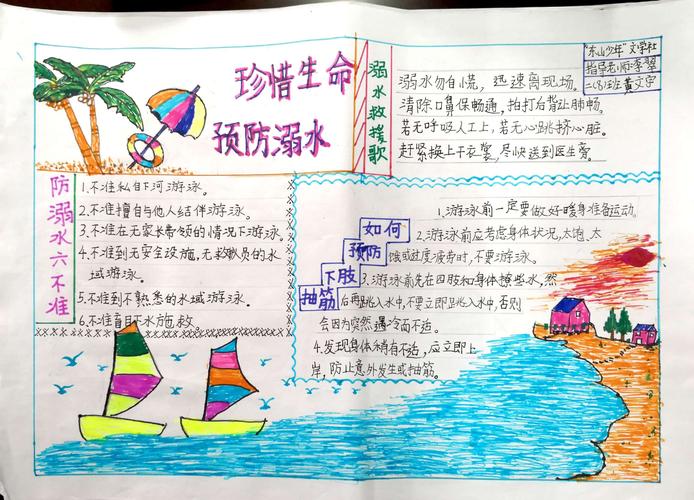 珍惜生命
预防溺水
溺水救援歌
溺水勿自慌，迅速离现场。
清除口鼻保畅通，拍打后背让肺畅。
若无呼吸人工上，若无心跳挤心脏。
赶紧换上干衣裳，尽快送到医生旁。
"东山少年"文学社
指导老师:李翠
二(8)班 黄文宇
防溺水六不准
1.不准私自下河游泳。
2.不准擅自与他人结伴游泳。
3.不准在无家长带领的情况下游泳。
4.不准到无安全设施,无救援员的水
域游泳。
5.不准到不熟悉的水域游泳。
6.不准盲目下水施救
如何
预防
下肢
抽筋
1.游泳前一定要做好暖身准备运动。
2.游泳前应考虑身体状况,太饱、太
饿或过度疲劳时,不要游泳。
3.游泳前先在四肢和身体撩些水,然
后再跳入水中,不要立即跳入水中,否则
会因为突然遇冷而不适。
4.发现身体稍有不适,应立即上
岸,防止意外发生或抽筋。